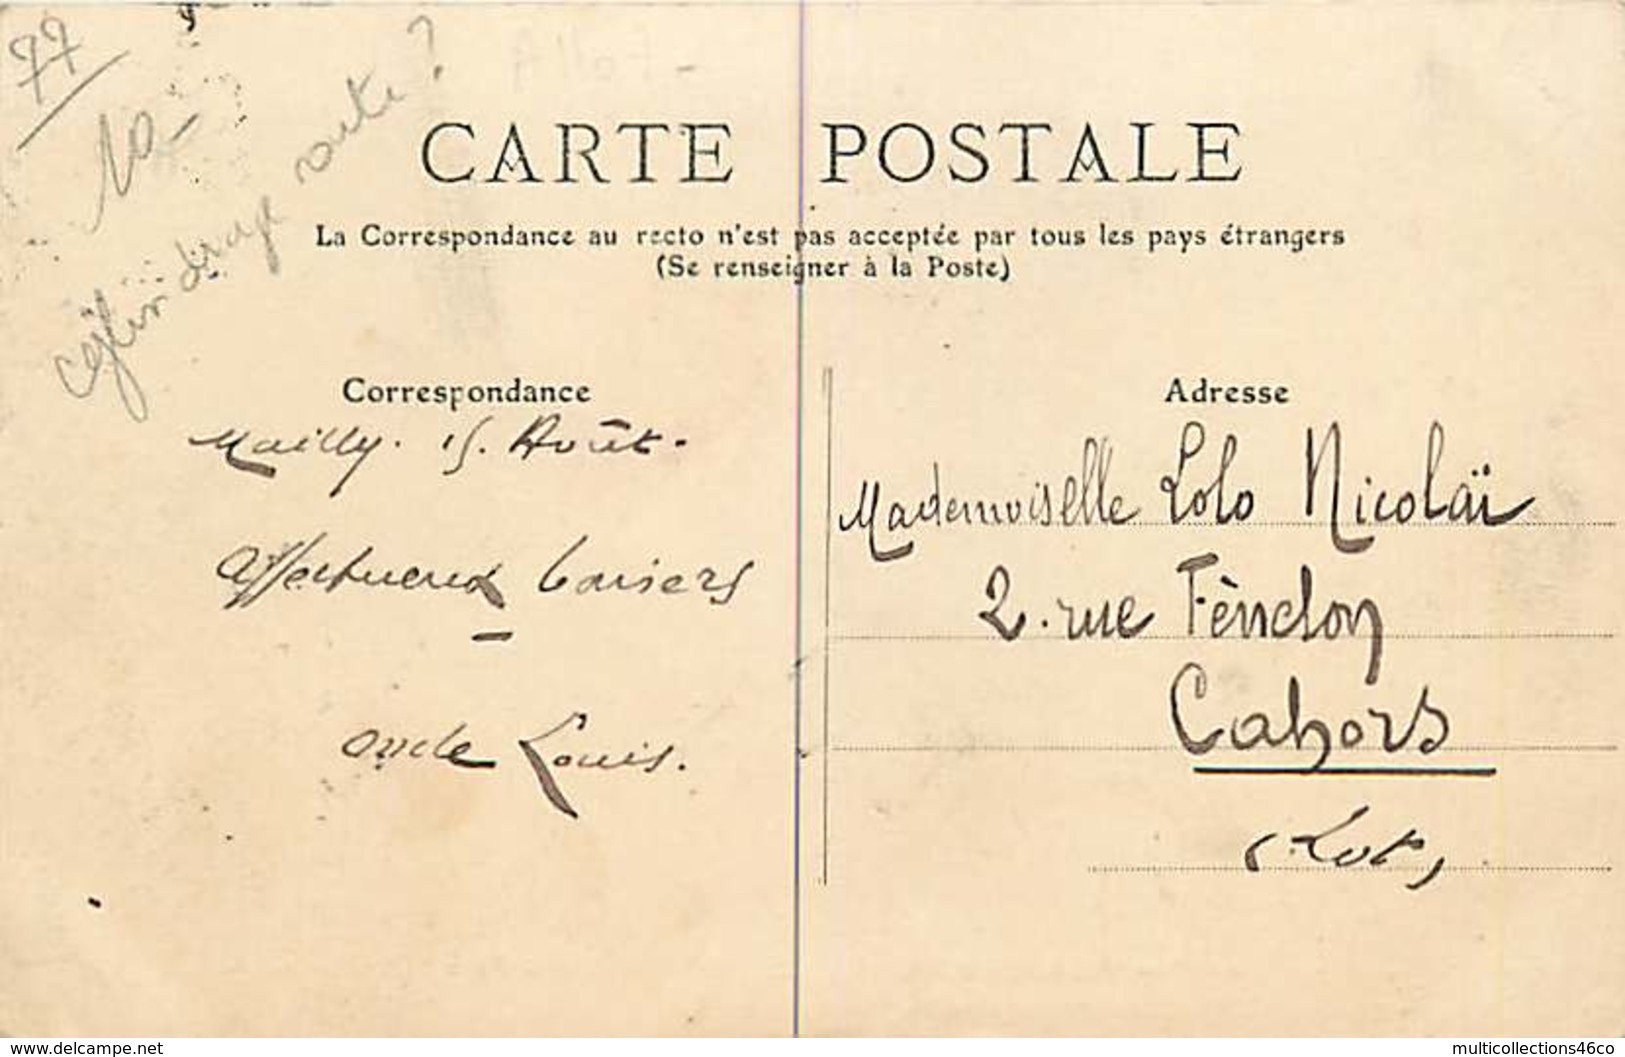 77
10-
cylindrage route ?
CARTE POSTALE
La Correspondance au recto n'est pas acceptée par tous les pays étrangers
(Se renseigner à la Poste)
Correspondance
Mailly. 15. Août.
affectueux baisers
oncle Louis.
Adresse
Mademoiselle Lolo Nicolaï
2. rue Fènelon
Cahors
(Lot)
www.delcampe.net
multicollections46co